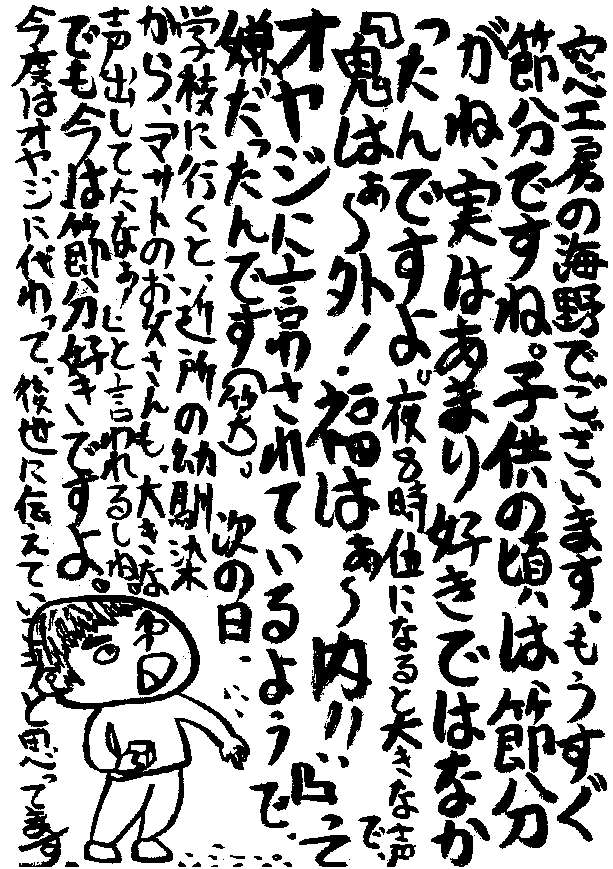 窓工房の海野でございます。もうすぐ
節分ですね。子供の頃は、節分
がね、実はあまり好きではなか
ったんですよ。夜8時位になると大きな声で、
『鬼はぁ〜外!福はぁ〜内!!』って
オヤジに言わされているようで、
嫌だったんです(笑)。次の日、
学校に行くと、近所の幼馴染
から、「マサトのお父さんも、大きな
声出して大変なぁ」と言われるしね。
でも今は節分好きですよ。
今度はオヤジに代わって、後世に伝えていこうと思ってます。